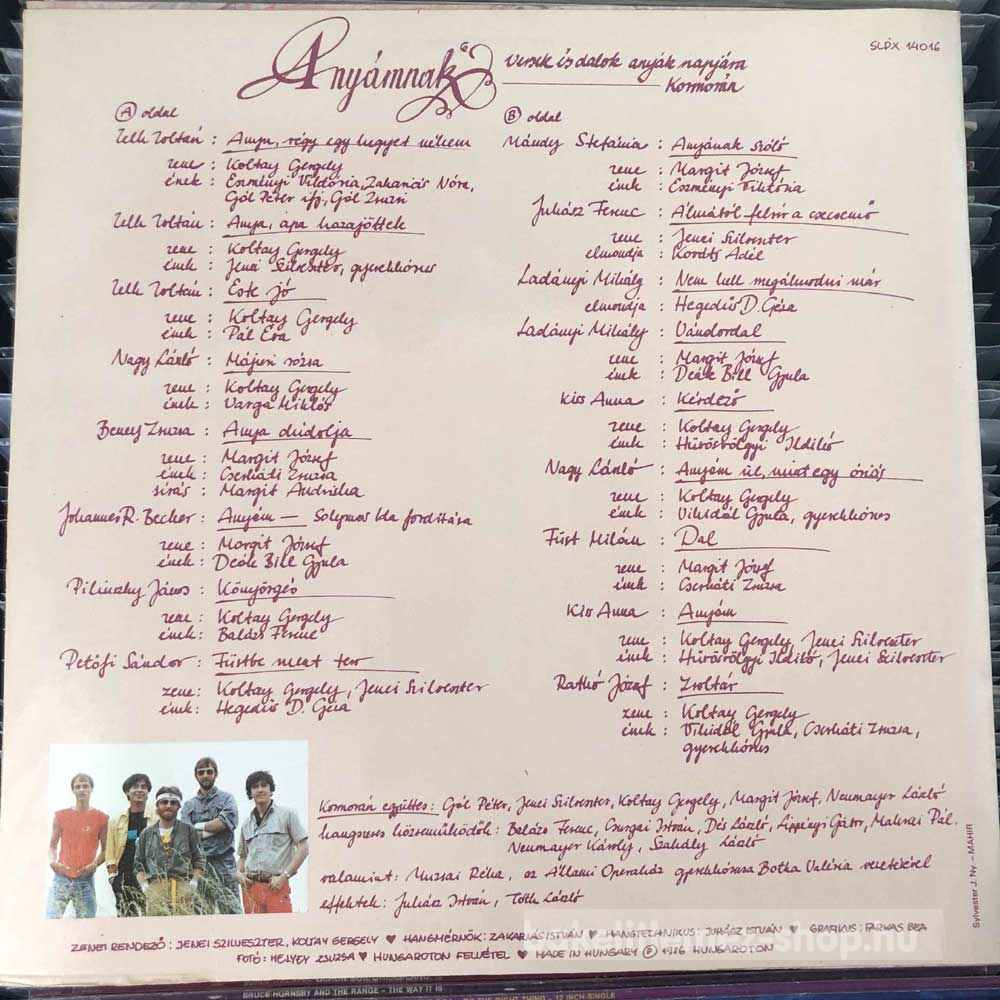 SLPX 14016
Anyámnak
versek és dalok anyák napjára
Kormorán
A oldal
Zelk Zoltán : Anya, végy egy hegyet nékem
zene : Koltay Gergely
ének : Eszményi Viktória, Zakariás Nóra,
Gál Péter ifj., Gál Zsuzsi
Zelk Zoltán : Anya, apa hazajöttek
zene : Koltay Gergely
ének : Jenei Szilveszter, gyerekkórus
Zelk Zoltán : Este jó
zene : Koltay Gergely
ének : Pál Éva
Nagy László : Májusi rózsa
zene : Koltay Gergely
ének : Varga Miklós
Beney Zsuzsa : Anya dúdolja
zene : Margit József
ének : Cserháti Zsuzsa
sírás : Margit Andriska
Johannes R. Becher : Anyám — Solymos Ida fordítása
zene : Margit József
ének : Deák Bill Gyula
Pilinszky János : Könyörgés
zene : Koltay Gergely
ének : Balázs Ferenc
Petőfi Sándor : Füstbe ment terv
zene : Koltay Gergely, Jenei Szilveszter
ének : Hegedűs D. Géza
B oldal
Mándy Stefánia : Anyának szóló
zene : Margit József
ének : Eszményi Viktória
Juhász Ferenc : Álmától felsír a csecsemő
zene : Jenei Szilveszter
elmondja : Kováts Adél
Ladányi Mihály : Nem kell megálmodni már
elmondja : Hegedűs D. Géza
Ladányi Mihály : Vándordal
zene : Margit József
ének : Deák Bill Gyula
Kiss Anna : Kérdező
zene : Koltay Gergely
ének : Hűvösvölgyi Ildikó
Nagy László : Anyám ül, mint egy óriás
zene : Koltay Gergely
ének : Vikidál Gyula, gyerekkórus
Füst Milán : Dal
zene : Margit József
ének : Cserháti Zsuzsa
Kiss Anna : Anyám
zene : Koltay Gergely, Jenei Szilveszter
ének : Hűvösvölgyi Ildikó, Jenei Szilveszter
Ratkó József : Zsoltár
zene : Koltay Gergely
ének : Vikidál Gyula, Cserháti Zsuzsa,
gyerekkórus
Kormorán együttes: Gál Péter, Jenei Szilveszter, Koltay Gergely, Margit József, Neumayer László
hangszeres közreműködők: Balázs Ferenc, Csurgai István, Dés László, Lippényi Gábor, Maksai Pál,
Neumayer Károly, Szakály László
valamint: Muzsai Réka, az Állami Operaház gyerekkórusa Botka Valéria vezetésével
effektek: Juhász István, Tóth László
ZENEI RENDEZŐ : JENEI SZILVESZTER, KOLTAY GERGELY ♥ HANGMÉRNÖK: ZAKARIÁS ISTVÁN ♥ HANGTECHNIKUS: JUHÁSZ ISTVÁN ♥ GRAFIKUS: FARKAS BEA
FOTÓ: HELYEY ZSUZSA ♥ HUNGAROTON FELVÉTEL ♥ MADE IN HUNGARY Ⓟ 1986 HUNGAROTON
Sylvester J. Ny – MAHIR
bakelitlemez-shop.hu
BRUCE HORNSBY AND THE RANGE - THE WAY IT IS